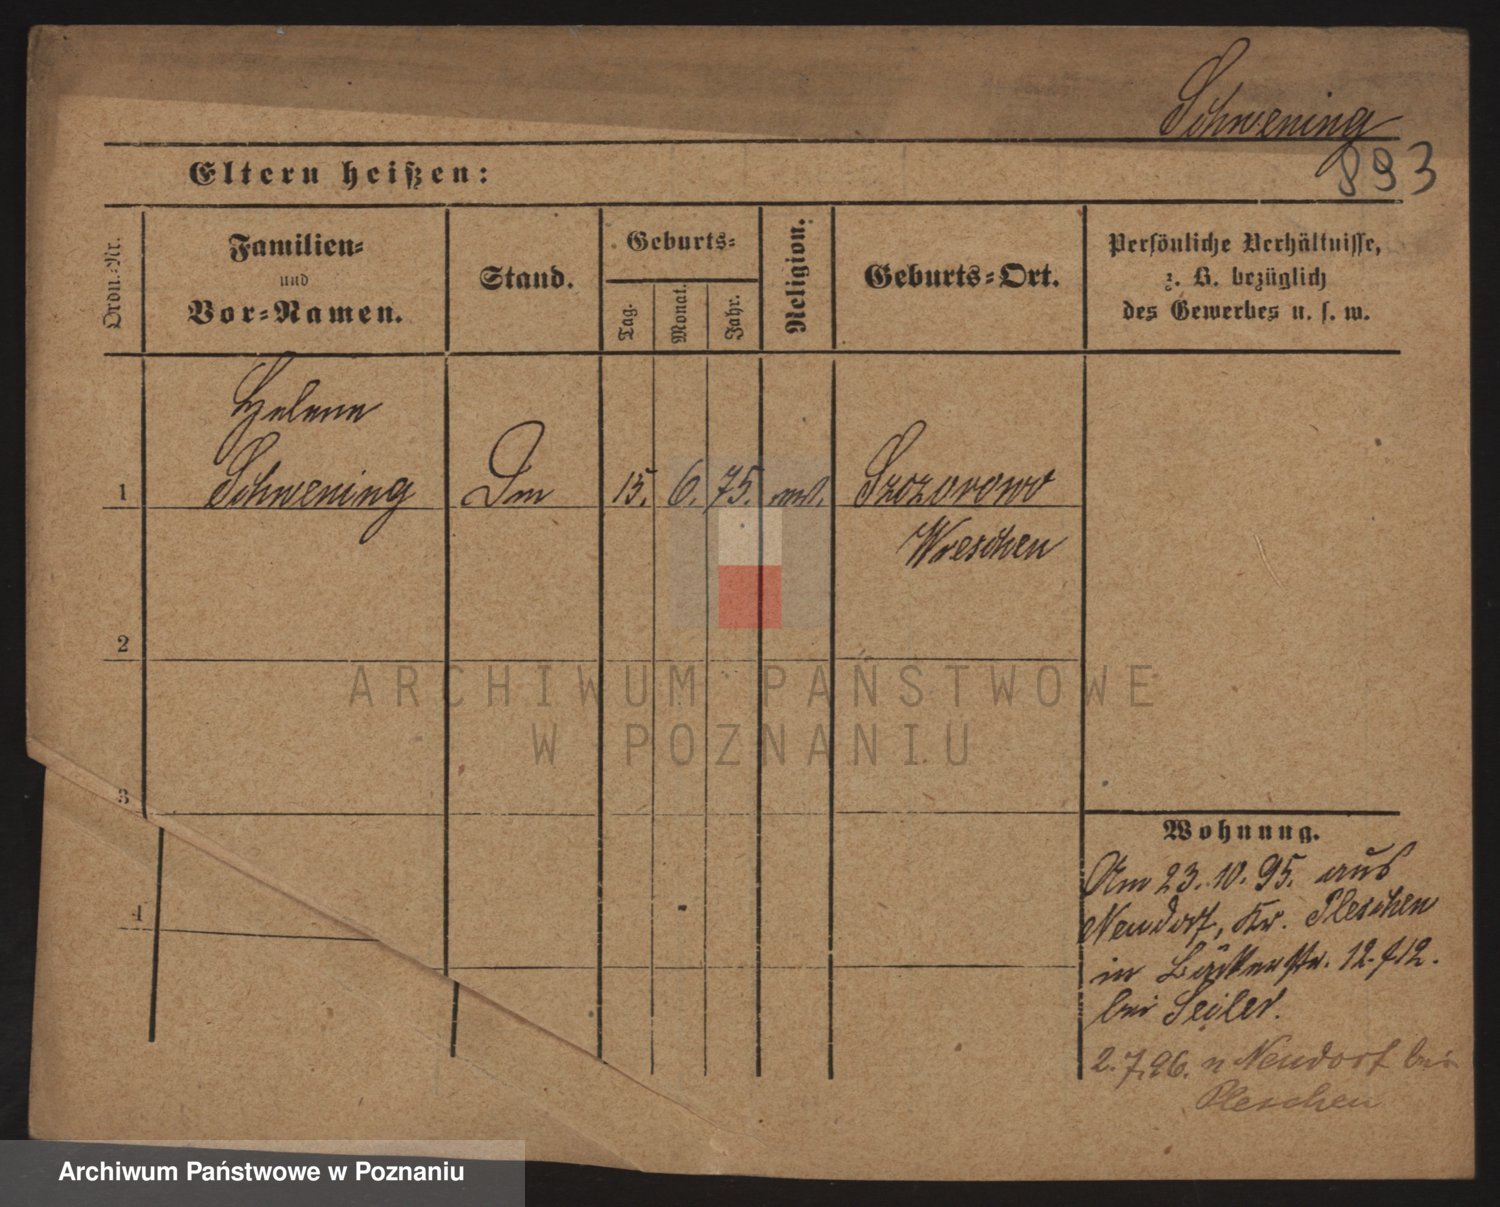 Schwening
893
Eltern heißen:
Ordn.-Nr.
Familien-
und
Vor-Namen.
Stand.
Geburts-
Tag.
Monat.
Jahr.
Religion.
Geburts-Ort.
Persönliche Verhältnisse,
z. B. bezüglich
des Gewerbes u. s. w.
Helene
1 Schwening 15. 6. 75. Szczorowo
Wreschen
2
ARCHIWUM PAŃSTWOWE
W POZNANIU
3
Wohnung.
4
Am 23. 10. 95. aus
Neudorf, Kr. Pleschen
in Bäckerstr. 12.
bei Seiler.
2. 7. 96. n Neudorf bei
Pleschen
Archiwum Państwowe w Poznaniu